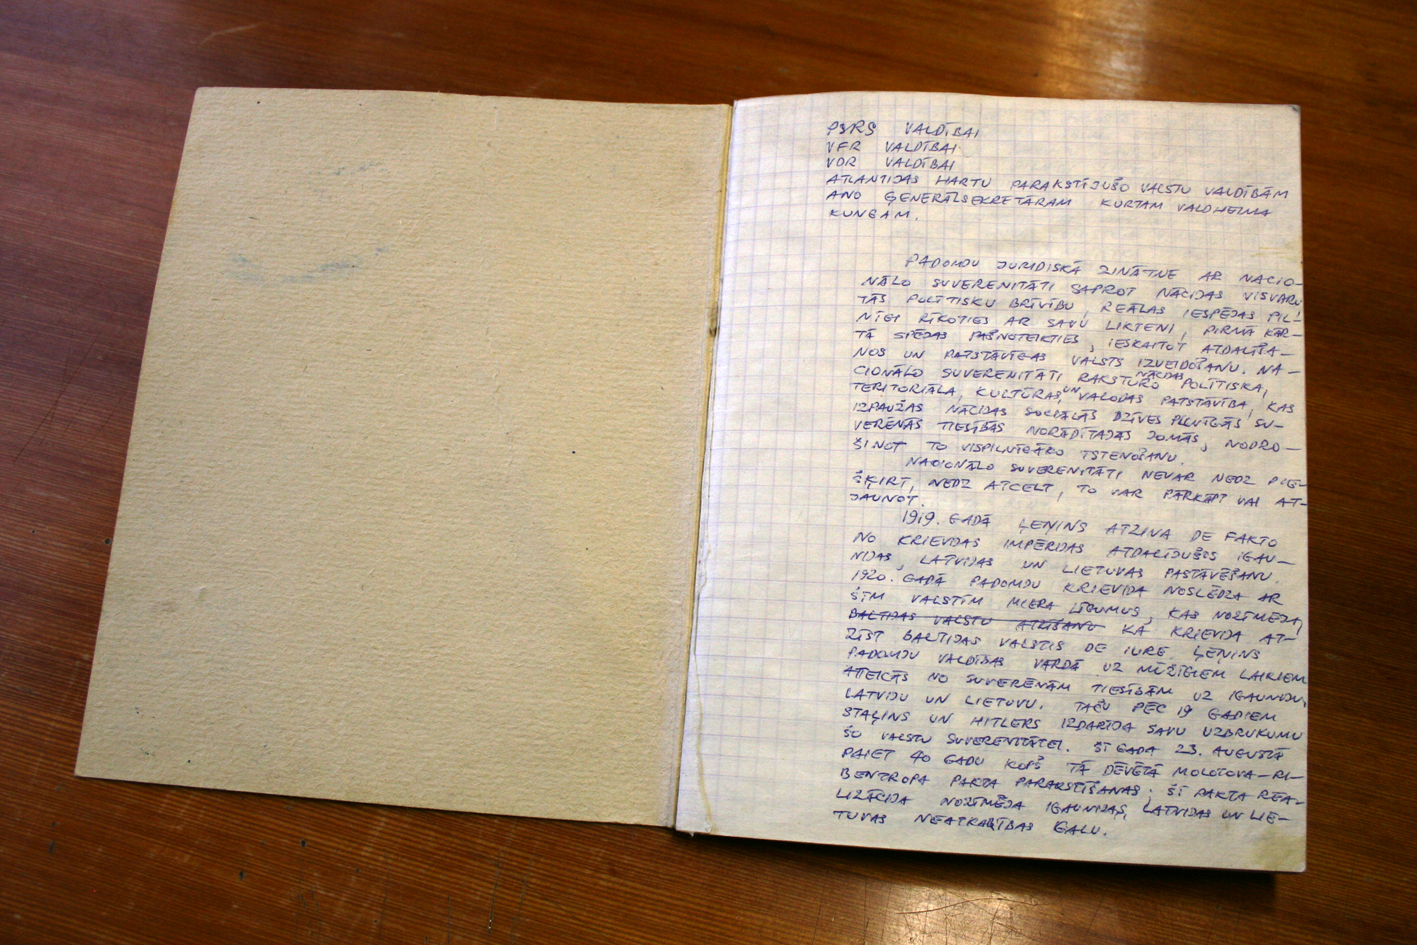 PSRS VALDĪBAI
VFR VALDĪBAI
VDR VALDĪBAI
ATLANTIJAS HARTU PARAKSTĪJUŠO VALSTU VALDĪBĀM
ANO ĢENERĀLSEKRETĀRAM KURTAM VALDHEIMA
KUNGAM.
PADOMJU JURIDISKĀ ZINĀTNE AR NACIO-
NĀLO SUVERENITĀTI SAPROT NĀCIJAS VISVARE-
TĀS POLITISKU BRĪVĪBU, REĀLAS IESPĒJAS PIL-
NĪGI RĪKOTIES AR SAVU LIKTENI, PIRMĀ KĀR-
TĀ SPĒJAS PAŠNOTEIKTIES, IESKAITOT ATDALĪŠA-
NOS UN PATSTĀVĪGAS VALSTS IZVEIDOŠANU. NA-
CIONĀLO SUVERENITĀTI RAKSTURO NĀCIJAS POLITISKA,
TERITORIĀLA, KULTŪRAS UN VALODAS PATSTĀVĪBA, KAS
IZPAUŽAS NĀCIJAS SOCIĀLĀS DZĪVES PILNĪGĀS SU-
VERĒNĀS TIESĪBĀS NORĀDĪTAJĀS JOMĀS, NODRO-
ŠINOT TO VISPILNĪGĀKO ĪSTENOŠANU.
NACIONĀLO SUVERENITĀTI NEVAR NEDZ PIE-
ŠĶIRT, NEDZ ATCELT, TO VAR PĀRKĀPT VAI AT-
JAUNOT.
1919. GADĀ ĻEŅINS ATZINA DE FAKTO
NO KRIEVIJAS IMPĒRIJAS ATDALĪJUŠOS IGAU-
NIJAS, LATVIJAS UN LIETUVAS PASTĀVĒŠANU.
1920. GADĀ PADOMJU KRIEVIJA NOSLĒDZA AR
ŠĪM VALSTĪM MIERA LĪGUMUS, KAS NOZĪMĒJA,
BALTIJAS VALSTU ATZĪŠANU KA KRIEVIJA AT-
ZĪST BALTIJAS VALSTIS DE IURE. ĻEŅINS
PADOMJU VALDĪBAS VĀRDĀ UZ MŪŽĪGIEM LAIKIEM
ATTEICĀS NO SUVERĒNĀM TIESĪBĀM UZ IGAUNIJU,
LATVIJU UN LIETUVU. TAČU PĒC 19 GADIEM
STAĻINS UN HITLERS IZDARĪJA SAVU UZBRUKUMU
ŠO VALSTU SUVERENITĀTEI. ŠĪ GADA 23. AUGUSTĀ
PAIET 40 GADU KOPŠ TĀ DĒVĒTĀ MOLOTOVA-RI-
BENTROPA PAKTA PARAKSTĪŠANAS. ŠĪ PAKTA REA-
LIZĀCIJA NOZĪMĒJA IGAUNIJAS, LATVIJAS UN LIE-
TUVAS NEATKARĪBAS GALU.